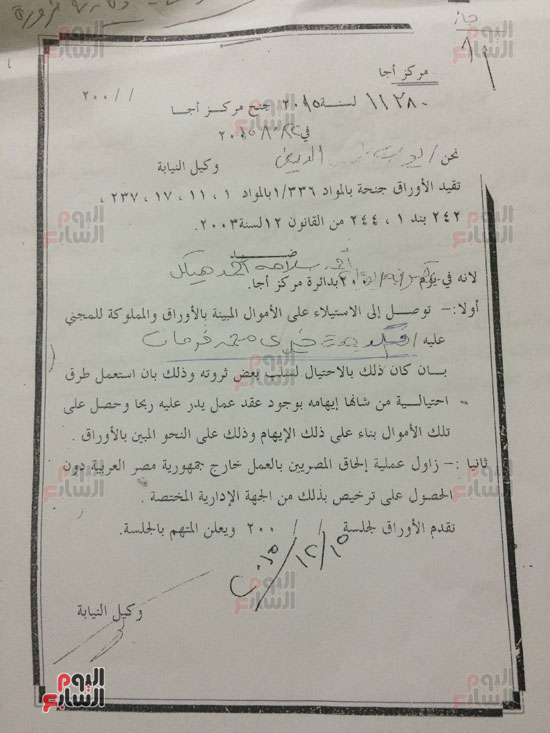 جاز
مركز أجا
١١٢٨٠ لسنة ٢٠١٥ جنح مركز أجا
/ / ٢٠٠
في
نحن / الدين وكيل النيابة
تقيد الأوراق جنحة بالمواد ١/٣٣٦ بالمواد ١ ، ١١ ، ١٧ ، ٢٣٧ ،
٢٤٢ بند ١ ، ٢٤٤ من القانون ١٢ لسنة ٢٠٠٣.
ضد
سلامه احمد هيكل
لانه في يوم / / ٢٠٠ بدائرة مركز أجا.
أولا:- توصل إلى الاستيلاء على الأموال المبينة بالأوراق والمملوكة للمجني
عليه /
بان كان ذلك بالاحتيال لسلب بعض ثروته وذلك بان استعمل طرق
احتيالية من شانها إيهامه بوجود عقد عمل يدر عليه ربحا وحصل على
تلك الأموال بناء على ذلك الإيهام وذلك على النحو المبين بالأوراق .
ثانيا :- زاول عملية إلحاق المصريين بالعمل خارج جمهورية مصر العربية دون
الحصول على ترخيص بذلك من الجهة الإدارية المختصة .
نقدم الأوراق لجلسة / / ٢٠٠ ويعلن المتهم بالجلسة.
١٥/١٢/٢٠١٥
وكيل النيابة
اليوم السابع